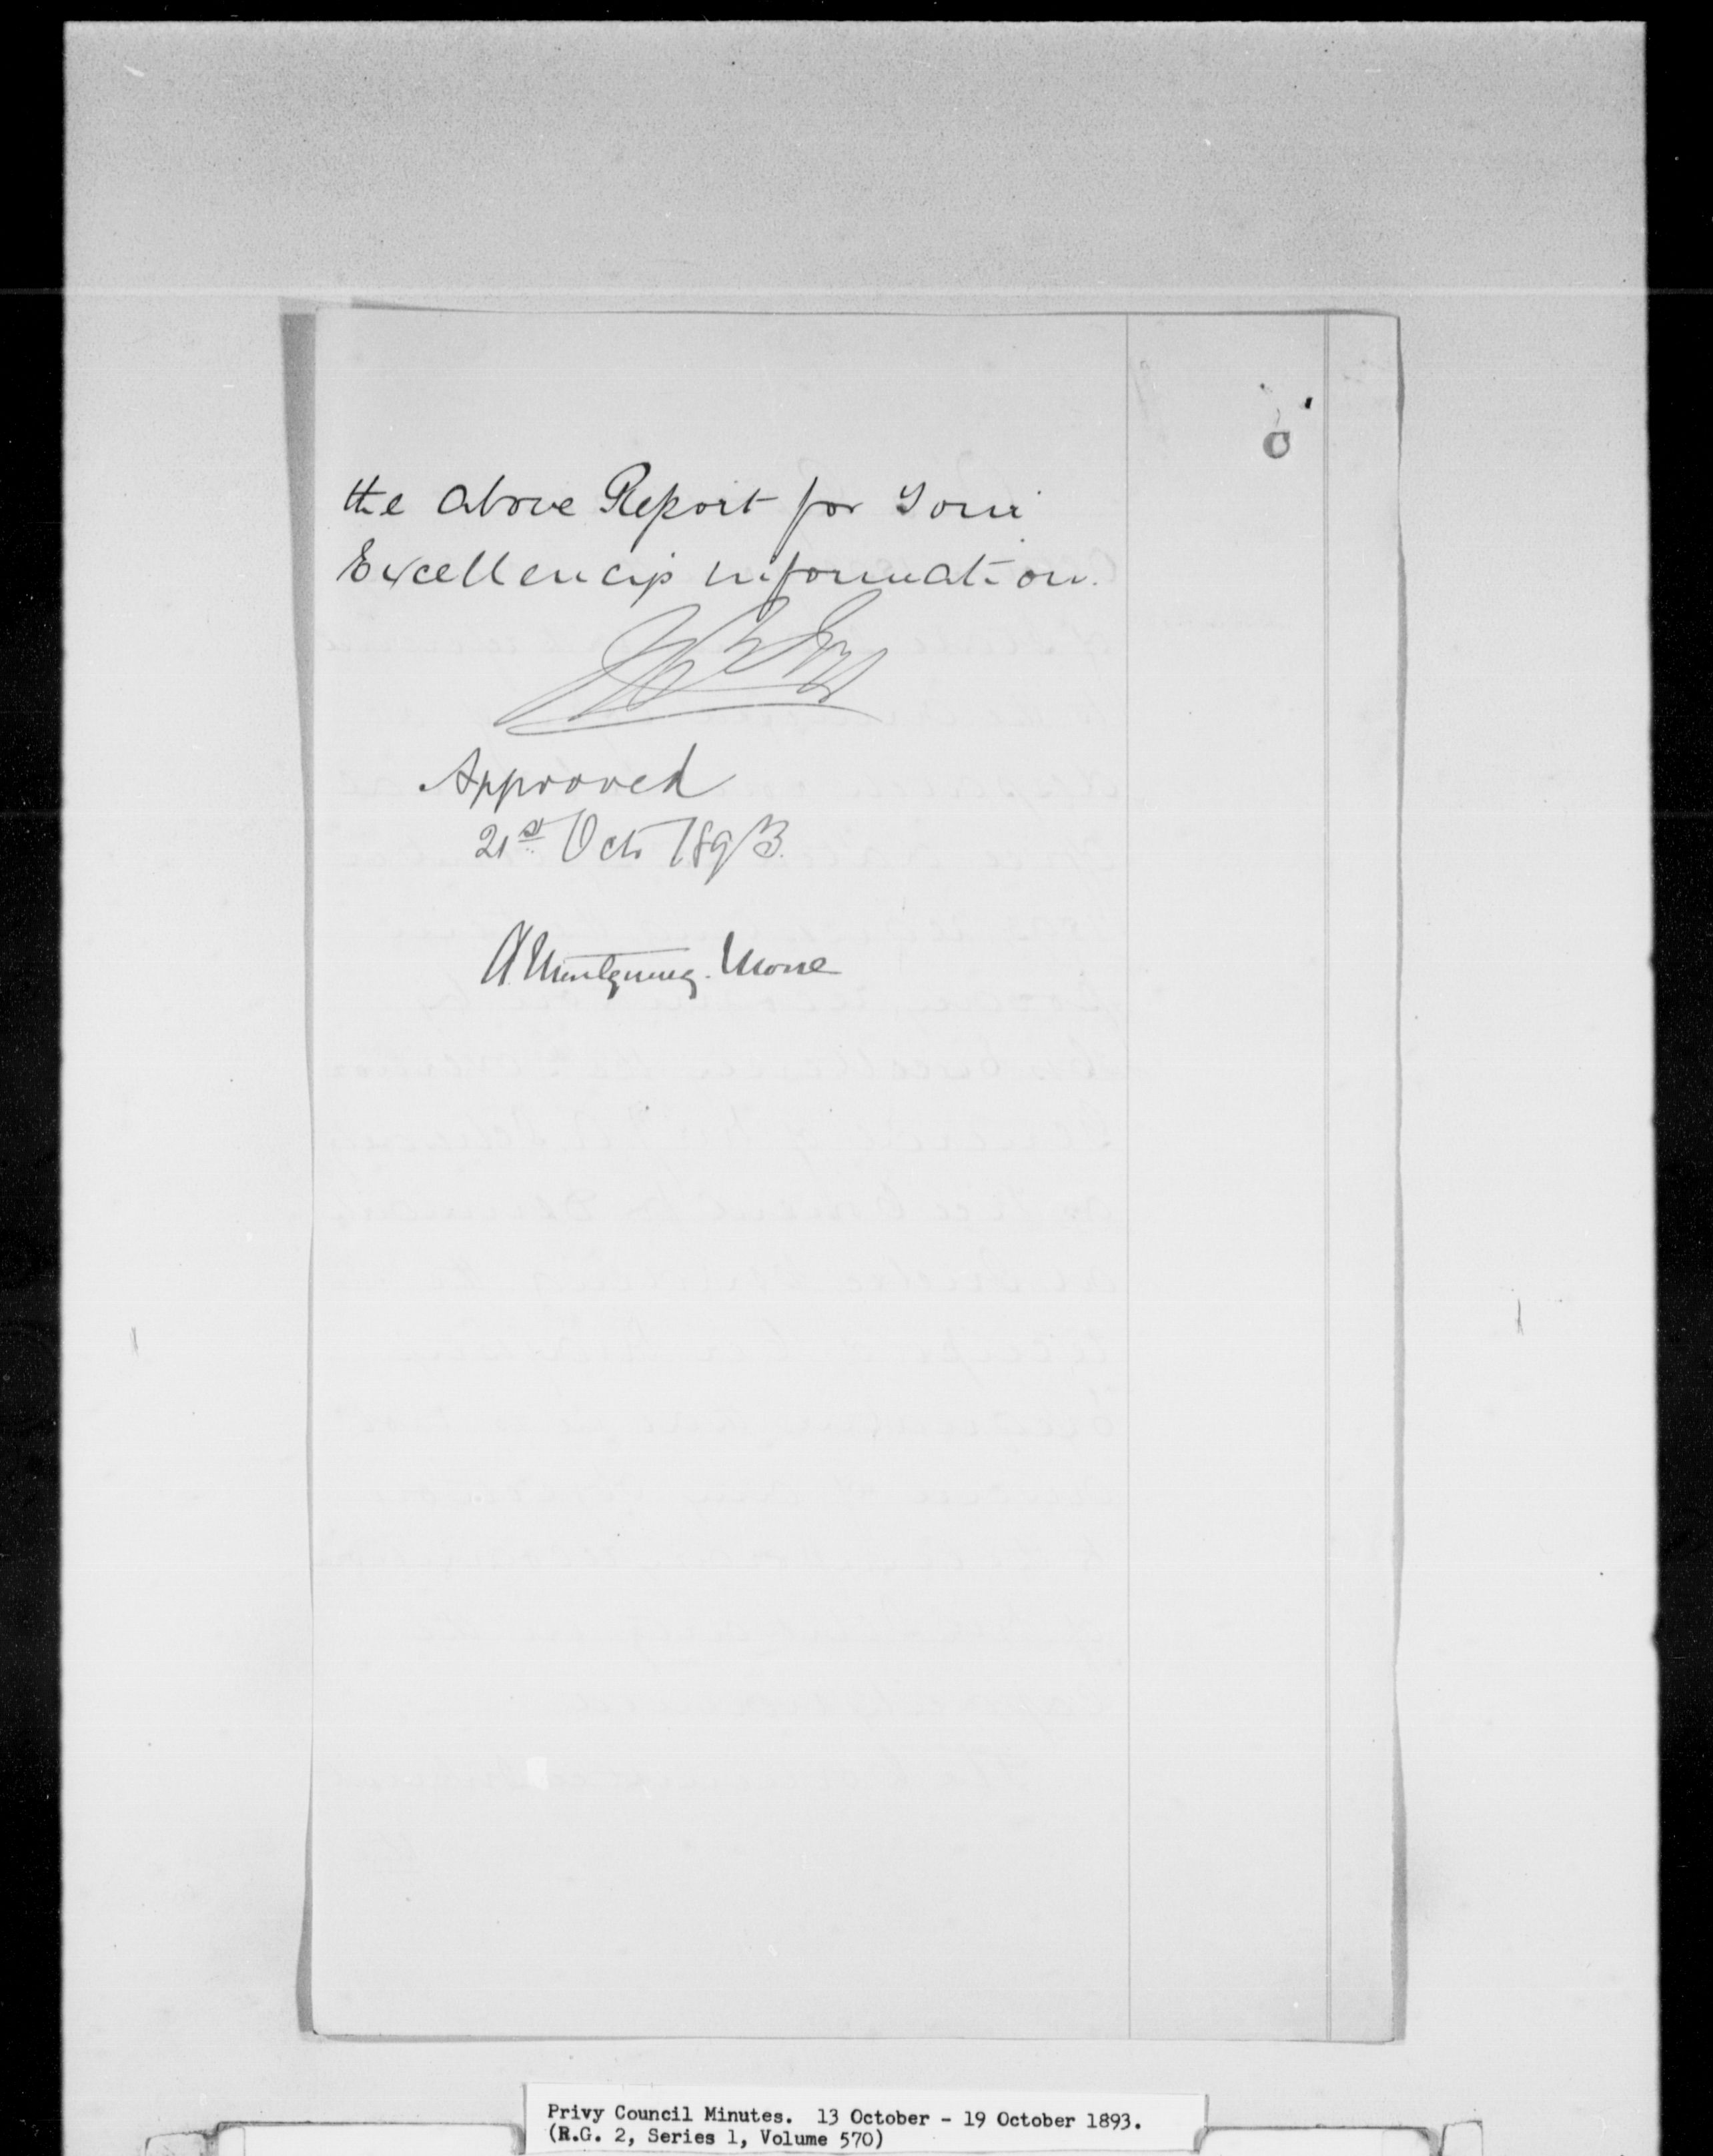 the above Report for Your
Excellency's information.
Approved
21st Oct 1893.
A. Montgomery. Moore
Privy Council Minutes. 13 October - 19 October 1893.
(R.G. 2, Series 1, Volume 570)